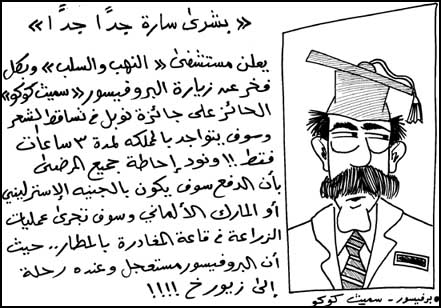 « بشرىٰ سارة جدًا جدًا »
يعلن مستشفىٰ « النهب والسلب » وبكل
فخر عن زيارة البروفيسور « سميث كوكو »
الحائز على جائزة نوبل في تساقط الشعر
وسوف يتواجد بالمملكة لمدة ٣ ساعات
فقط !! ونود إحاطة جميع المرضىٰ
بأن الدفع سوف يكون بالجنيه الاسترليني
أو المارك الألماني وسوف تجرىٰ عمليات
الزراعة في قاعة المغادرة بالمطار .. حيث
أن البروفيسور مستعجل وعنده رحلة
إلىٰ زيورخ !!!!
بروفيسور - سميث كوكو